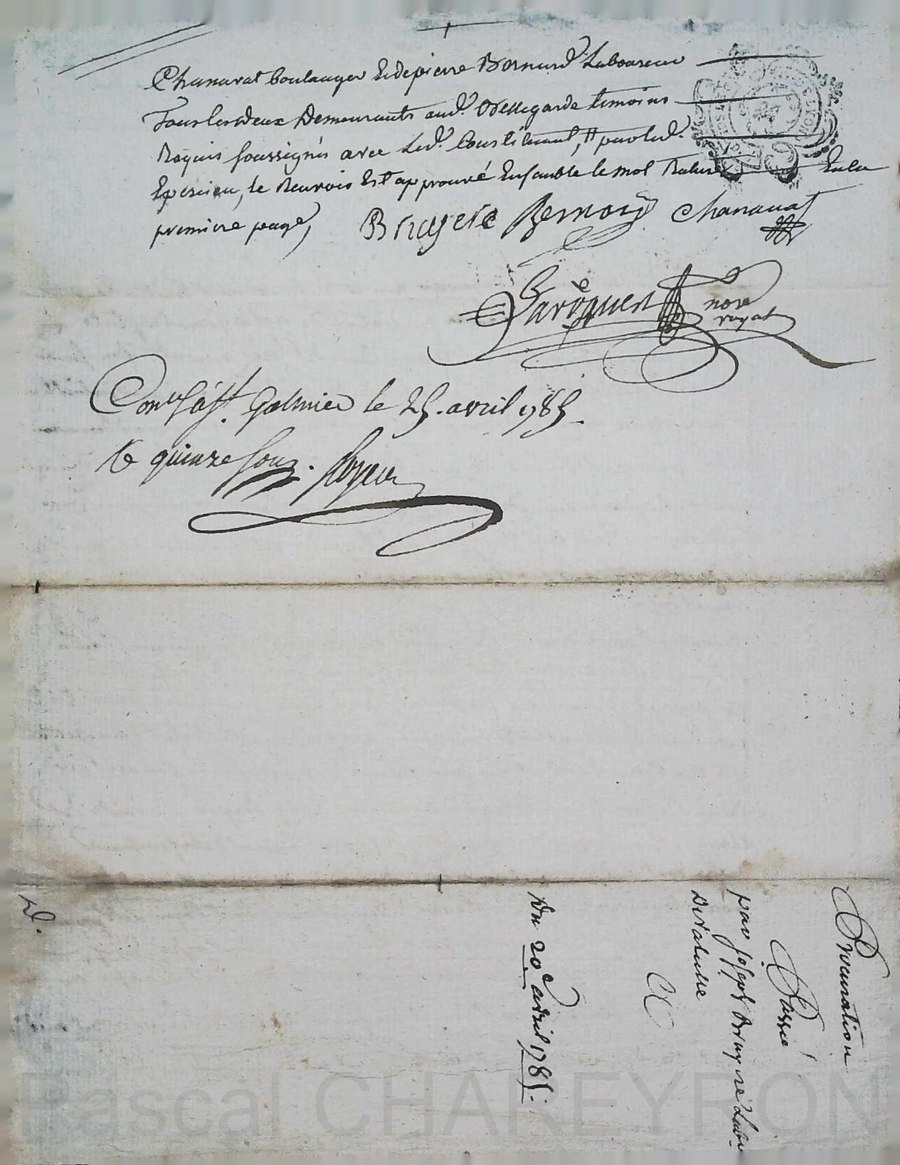 Chanavat boulanger Et de pierre Bernard Laboureur
Tous les deux Demeurants aud.t Bellegarde temoins
Requis soussignés avec Led.t Constituant, // par led.t
Epercieu, le Renvois Est approuvé Ensemble le mot En la
premiere page,
Bruyere Bernard Chanavat
nore
royal
Con.lé à S.t Galmier le 25. avril 1785.
R quinze sous.
Procuration
Passée
par Joseph Bruyere
Du 20.e avril 1785.
Pascal CHAREYRON